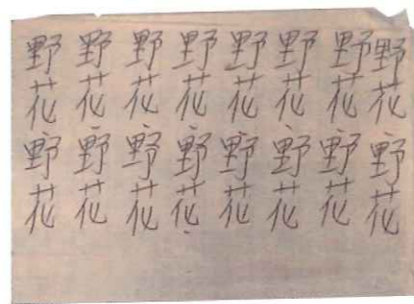 野野野野野野野野
花花花花花花花花
野野野野野野野野
花花花花花花花花